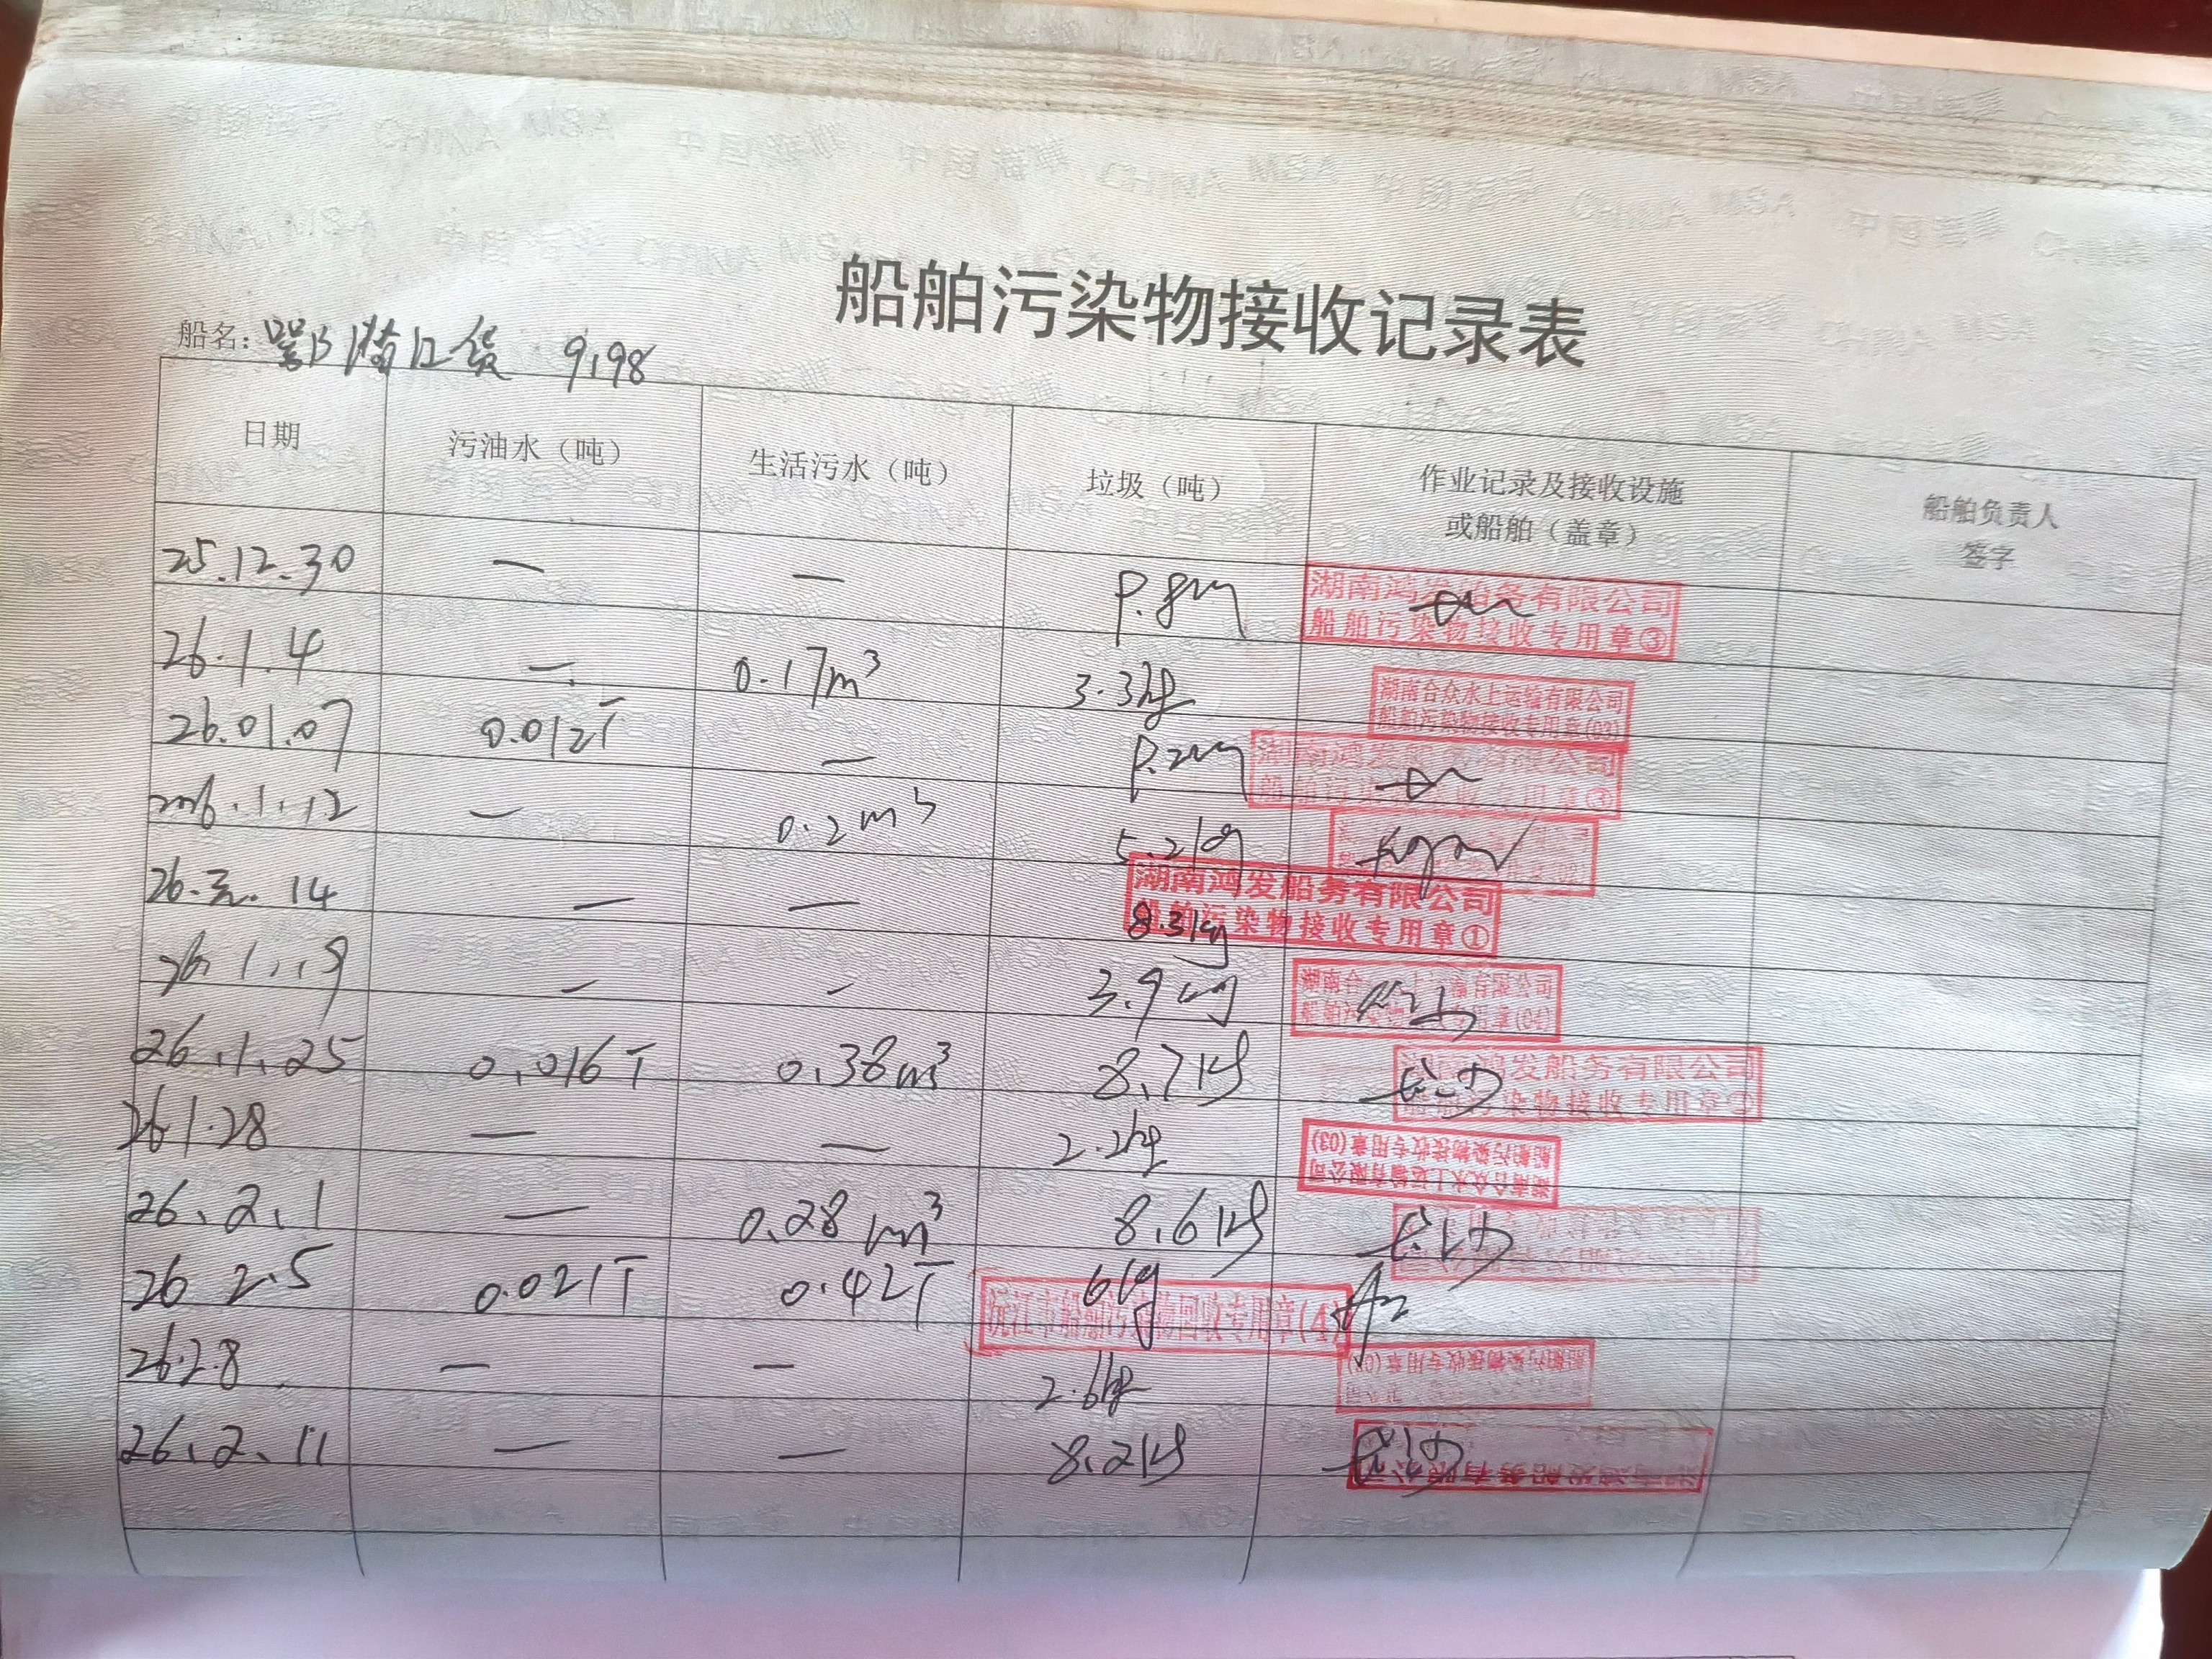 船舶污染物接收记录表
船名: 9198
日期 污油水（吨） 生活污水（吨） 垃圾（吨） 作业记录及接收设施或船舶（盖章） 船舶负责人签字
25.12.30 — — 湖南鸿发船务有限公司
船舶污染物接收专用章③
26.1.4 — 0.17m³ 3.3kg 湖南合众水上运输有限公司
船舶污染物接收专用章(03)
26.01.07 0.012T — 湖南鸿发船务有限公司
船舶污染物接收专用章③
2026.1.12 — 0.2m³ 5.2kg
26.元.14 — — 8.3kg 湖南鸿发船务有限公司
船舶污染物接收专用章①
26.1.19 — — 3.9kg 湖南合众水上运输有限公司
船舶污染物接收专用章(04)
26.1.25 0.016T 0.38m³ 8.7kg 湖南鸿发船务有限公司 长沙
船舶污染物接收专用章
26.1.28 — — 2.2kg 湖南合众水上运输有限公司
船舶污染物接收专用章(03)
26.2.1 — 0.28m³ 8.6kg 长沙
26 2.5 0.021T 0.42T 6kg 沅江市船舶污染物回收专用章(4)
26.2.8 — — 2.6kg 船舶污染物接收专用章(03)
26.2.11 — — 8.2kg 长沙 湖南鸿发船务有限公司